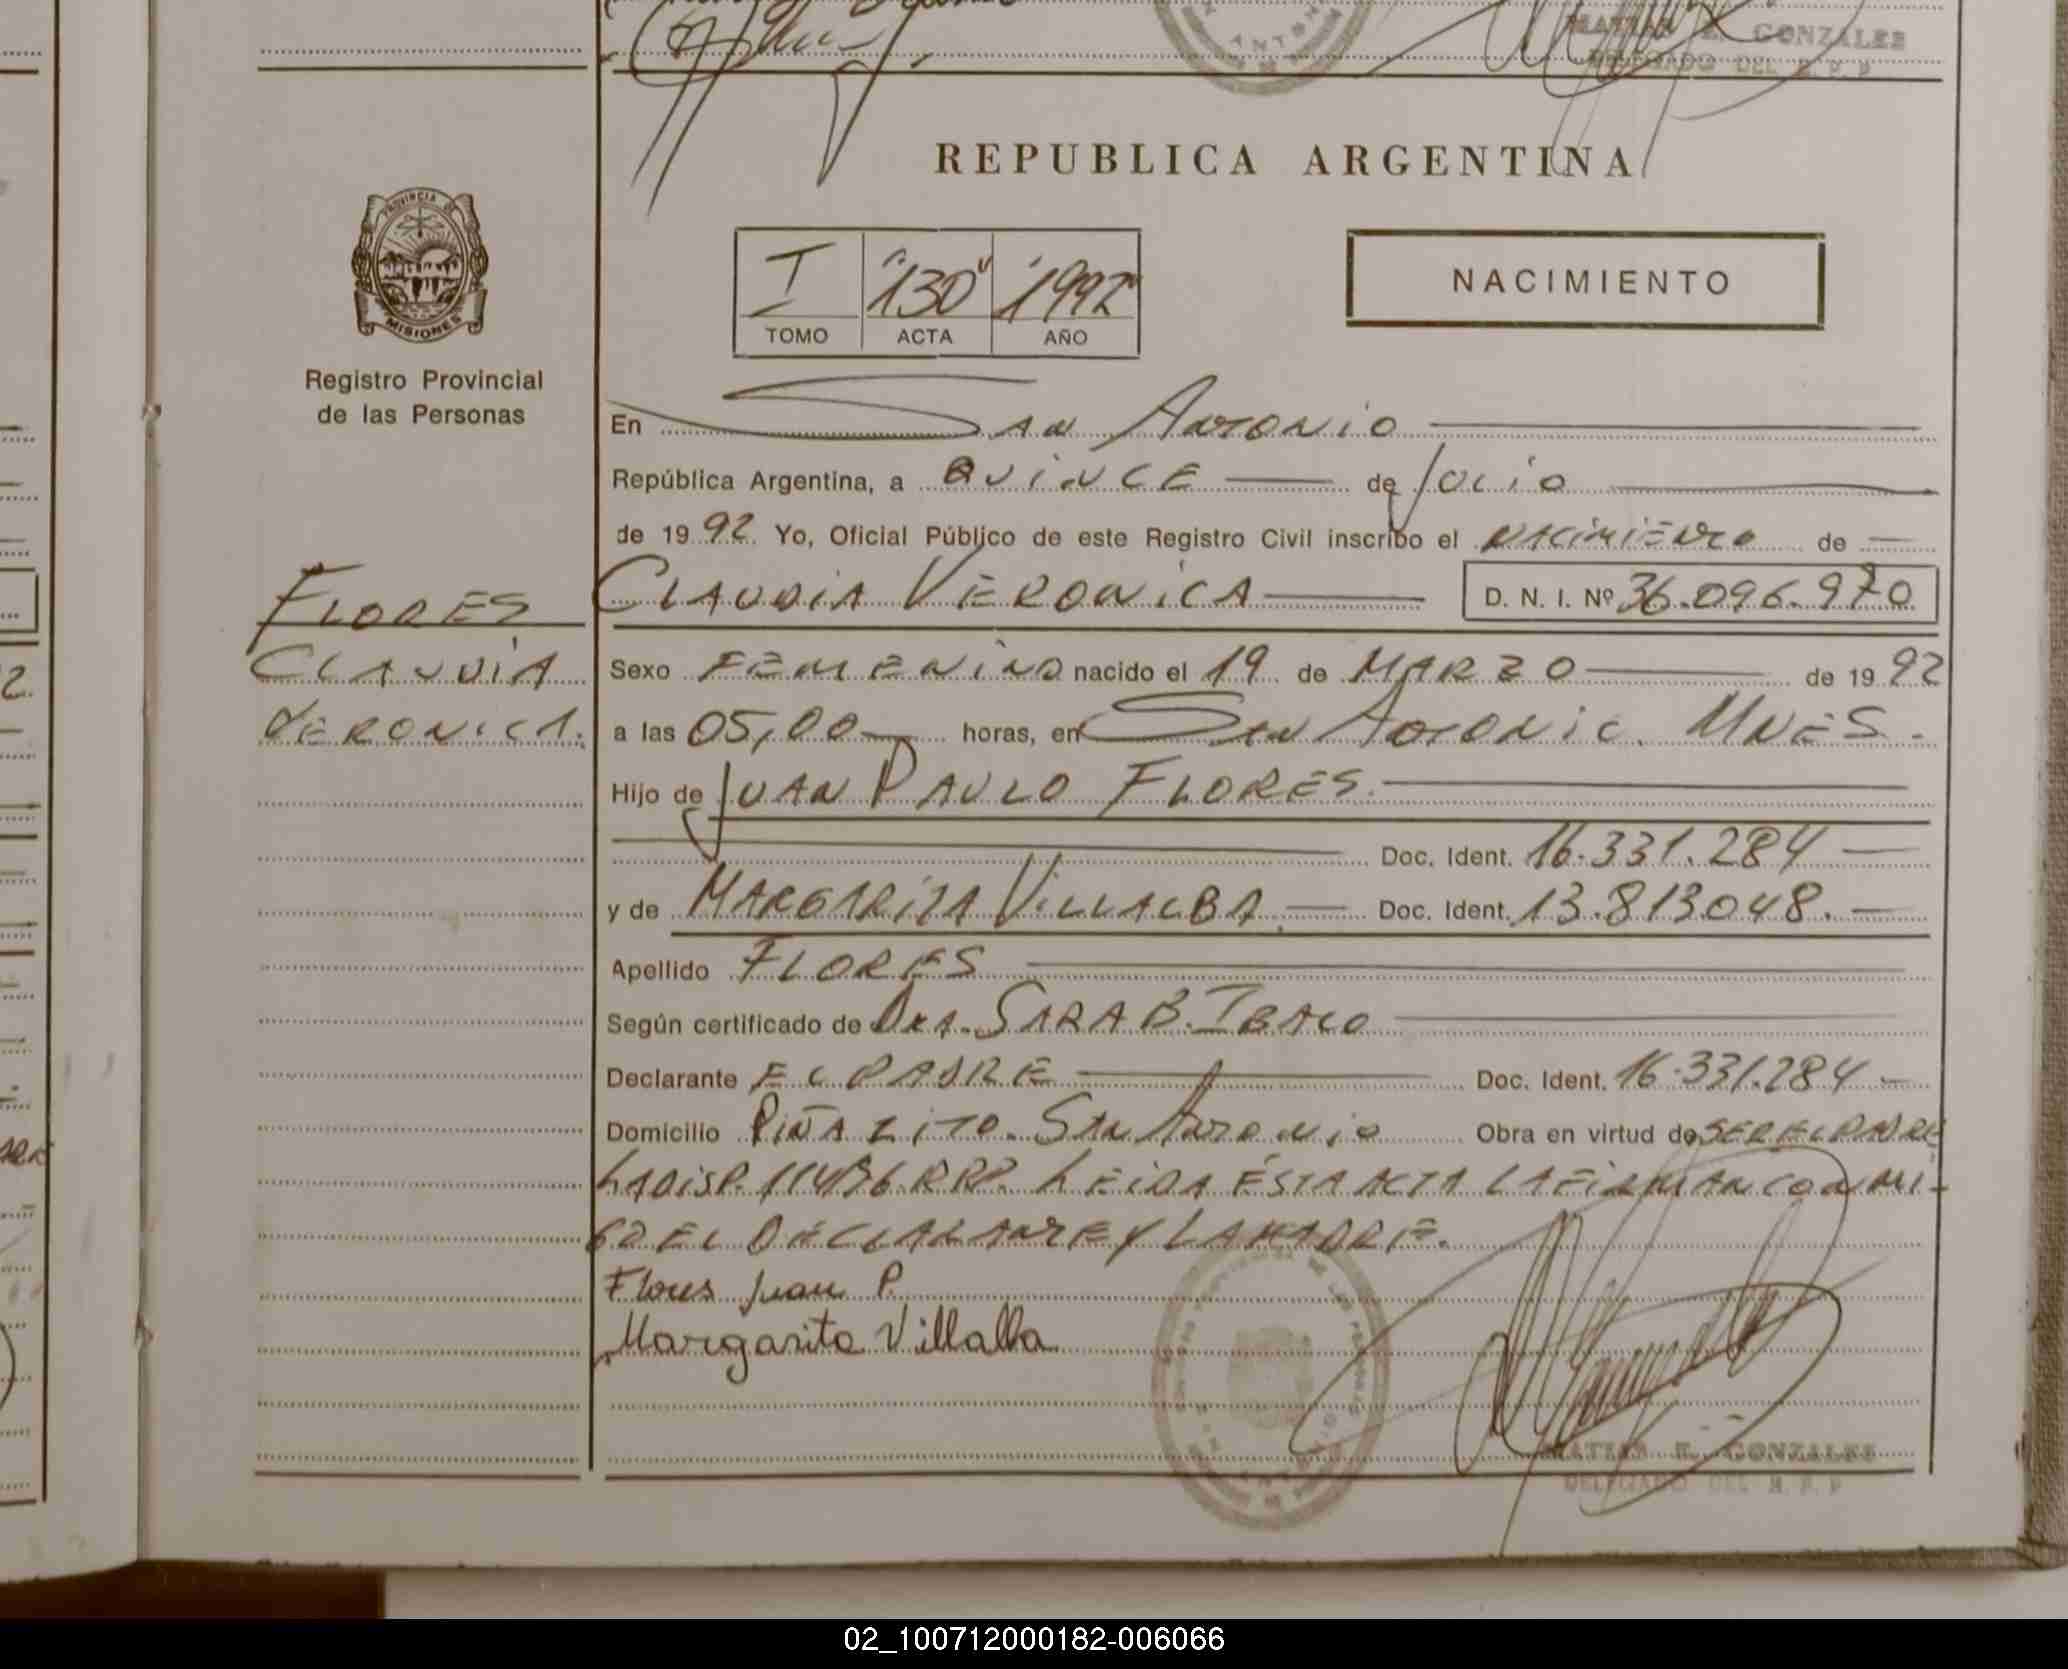 MATIAS E. GONZALES
DELEGADO DEL R. P. P
REPUBLICA ARGENTINA
PROVINCIA DE
MISIONES
Registro Provincial
de las Personas
I "130" "1992"
TOMO ACTA AÑO
NACIMIENTO
En San Antonio
República Argentina, a QUINCE de Julio
de 1992 Yo, Oficial Público de este Registro Civil inscribo el nacimiento de
FLORES
CLAUDIA
VERONICA.
CLAUDIA VERONICA D. N. I. Nº 36.096.970
Sexo FEMENINO nacido el 19 de MARZO de 1992
a las 05,00 horas, en San Antonio. MNES.
Hijo de JUAN PAULO FLORES.
Doc. Ident. 16.331.284
y de MARGARITA VILLALBA Doc. Ident. 13.813048.
Apellido FLORES
Según certificado de Dra. SARA B.
Declarante EL PADRE Doc. Ident. 16.331.284
Domicilio PIÑALITO. San Antonio Obra en virtud de SER EL PADRE
LA DISP. RPP. LEIDA ÉSTA ACTA LA FIRMAN CON MI-
GO EL DECLARANTE Y LA MADRE.
Flores Juan P.
Margarita Villalba
MATIAS E. GONZALES
DELEGADO DEL R. P. P
02_100712000182-006066